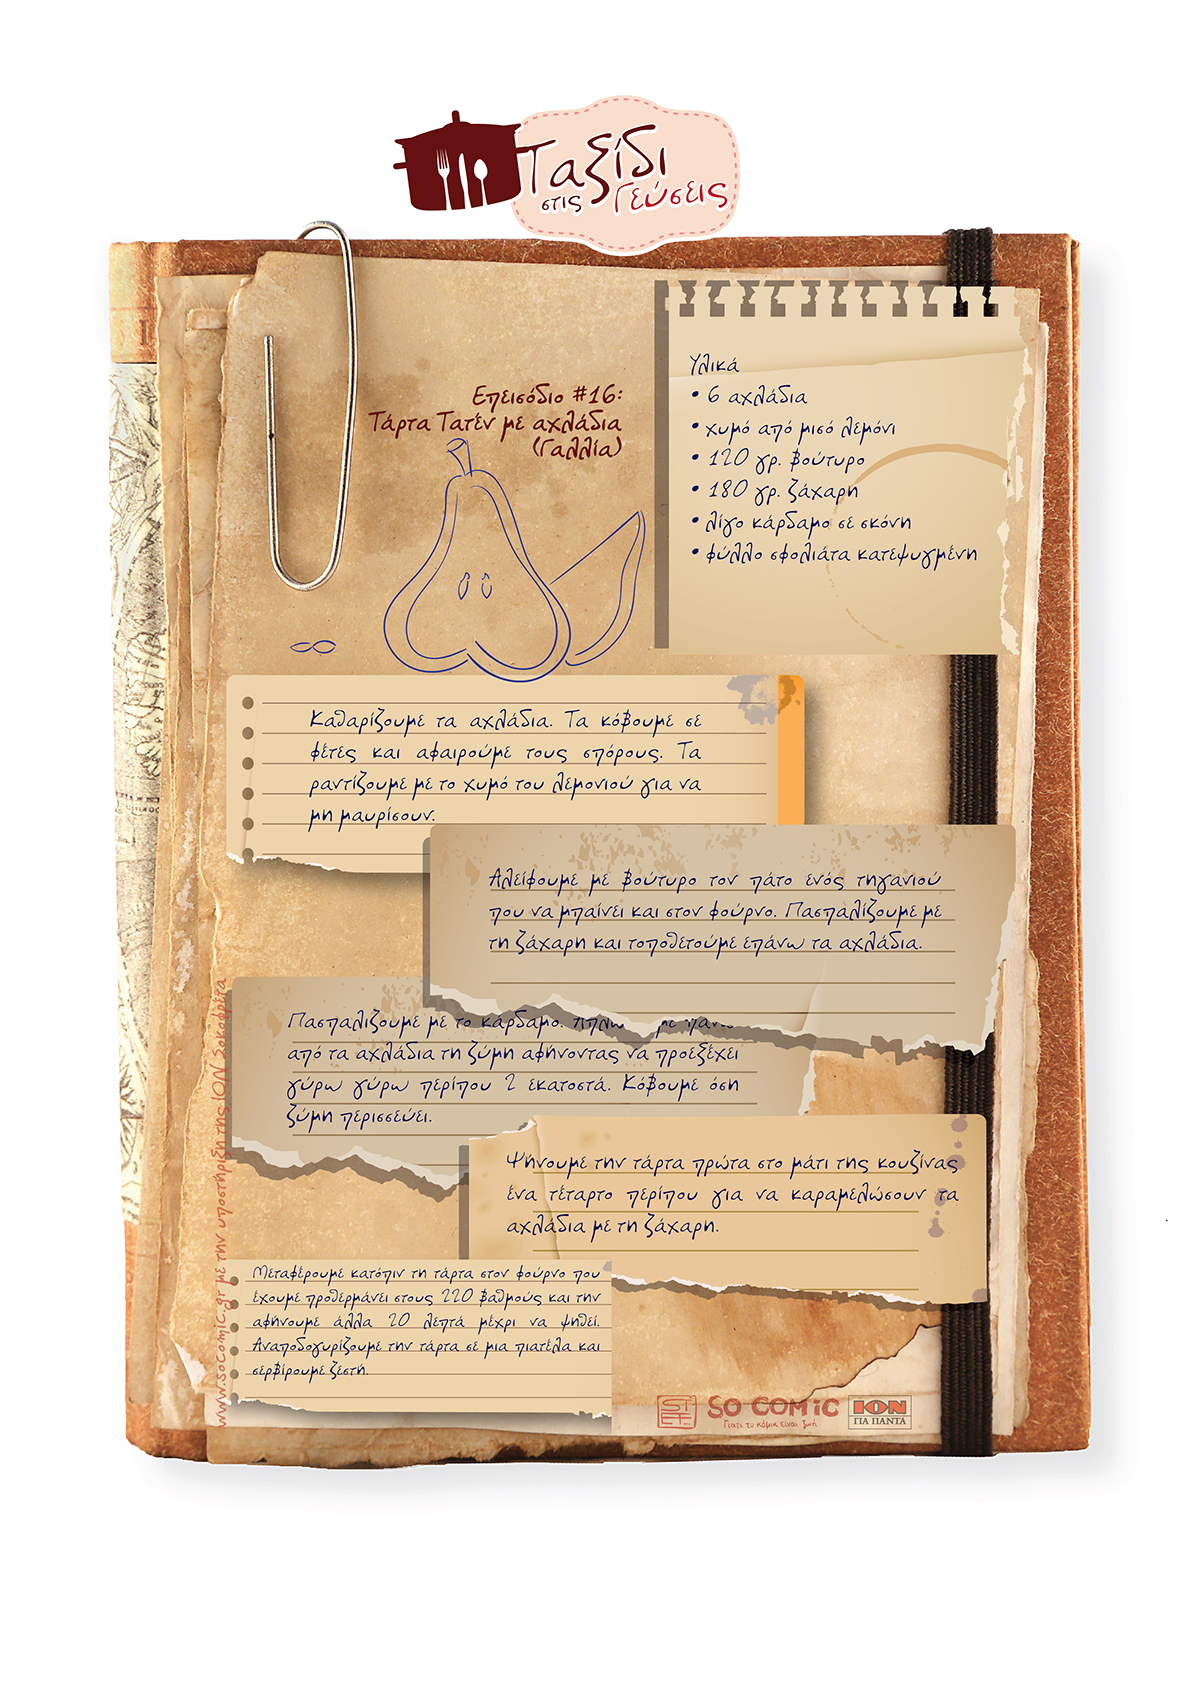 Ταξίδι
στις Γεύσεις
Επεισόδιο #16:
Τάρτα Τατέν με αχλάδια
(Γαλλία)
Υλικά
• 6 αχλάδια
• χυμό από μισό λεμόνι
• 120 γρ. βούτυρο
• 180 γρ. ζάχαρη
• λίγο κάρδαμο σε σκόνη
• φύλλο σφολιάτα κατεψυγμένη
Καθαρίζουμε τα αχλάδια. Τα κόβουμε σε
φέτες και αφαιρούμε τους σπόρους. Τα
ραντίζουμε με το χυμό του λεμονιού για να
μη μαυρίσουν.
Αλείφουμε με βούτυρο τον πάτο ενός τηγανιού
που να μπαίνει και στον φούρνο. Πασπαλίζουμε με
τη ζάχαρη και τοποθετούμε επάνω τα αχλάδια.
Πασπαλίζουμε με το κάρδαμο.
από τα αχλάδια τη ζύμη αφήνοντας να προεξέχει
γύρω γύρω περίπου 2 εκατοστά. Κόβουμε όση
ζύμη περισσεύει.
Ψήνουμε την τάρτα πρώτα στο μάτι της κουζίνας
ένα τέταρτο περίπου για να καραμελώσουν τα
αχλάδια με τη ζάχαρη.
Μεταφέρουμε κατόπιν τη τάρτα στον φούρνο που
έχουμε προθερμάνει στους 220 βαθμούς και την
αφήνουμε άλλα 20 λεπτά μέχρι να ψηθεί.
Αναποδογυρίζουμε την τάρτα σε μια πιατέλα και
σερβίρουμε ζεστή.
www.SoComic.gr με την υποστήριξη της ΙΟΝ Σοκοφρέτα
SO COMIC
Γιατί το κόμικ είναι ζωή
ΙΟΝ
ΓΙΑ ΠΑΝΤΑ